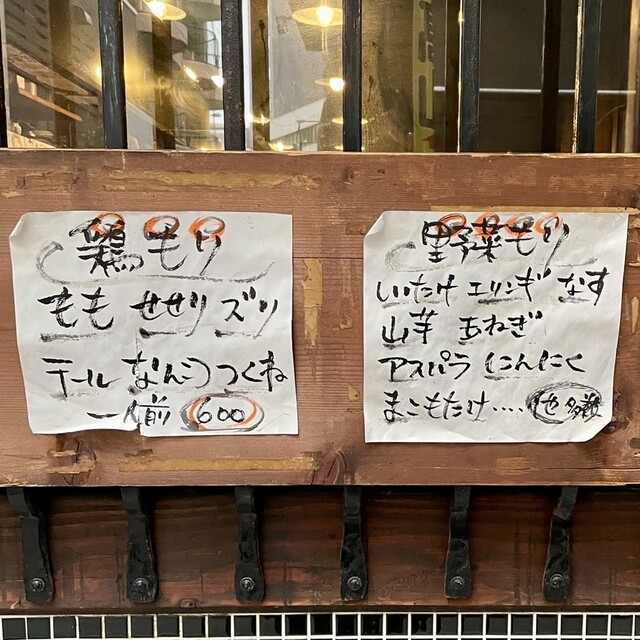 鶏もり
もも せせり ズリ
テール なんこつ つくね
一人前 600
野菜もり
しいたけ エリンギ なす
山芋 玉ねぎ
アスパラ にんにく
まこもたけ.... 他多数